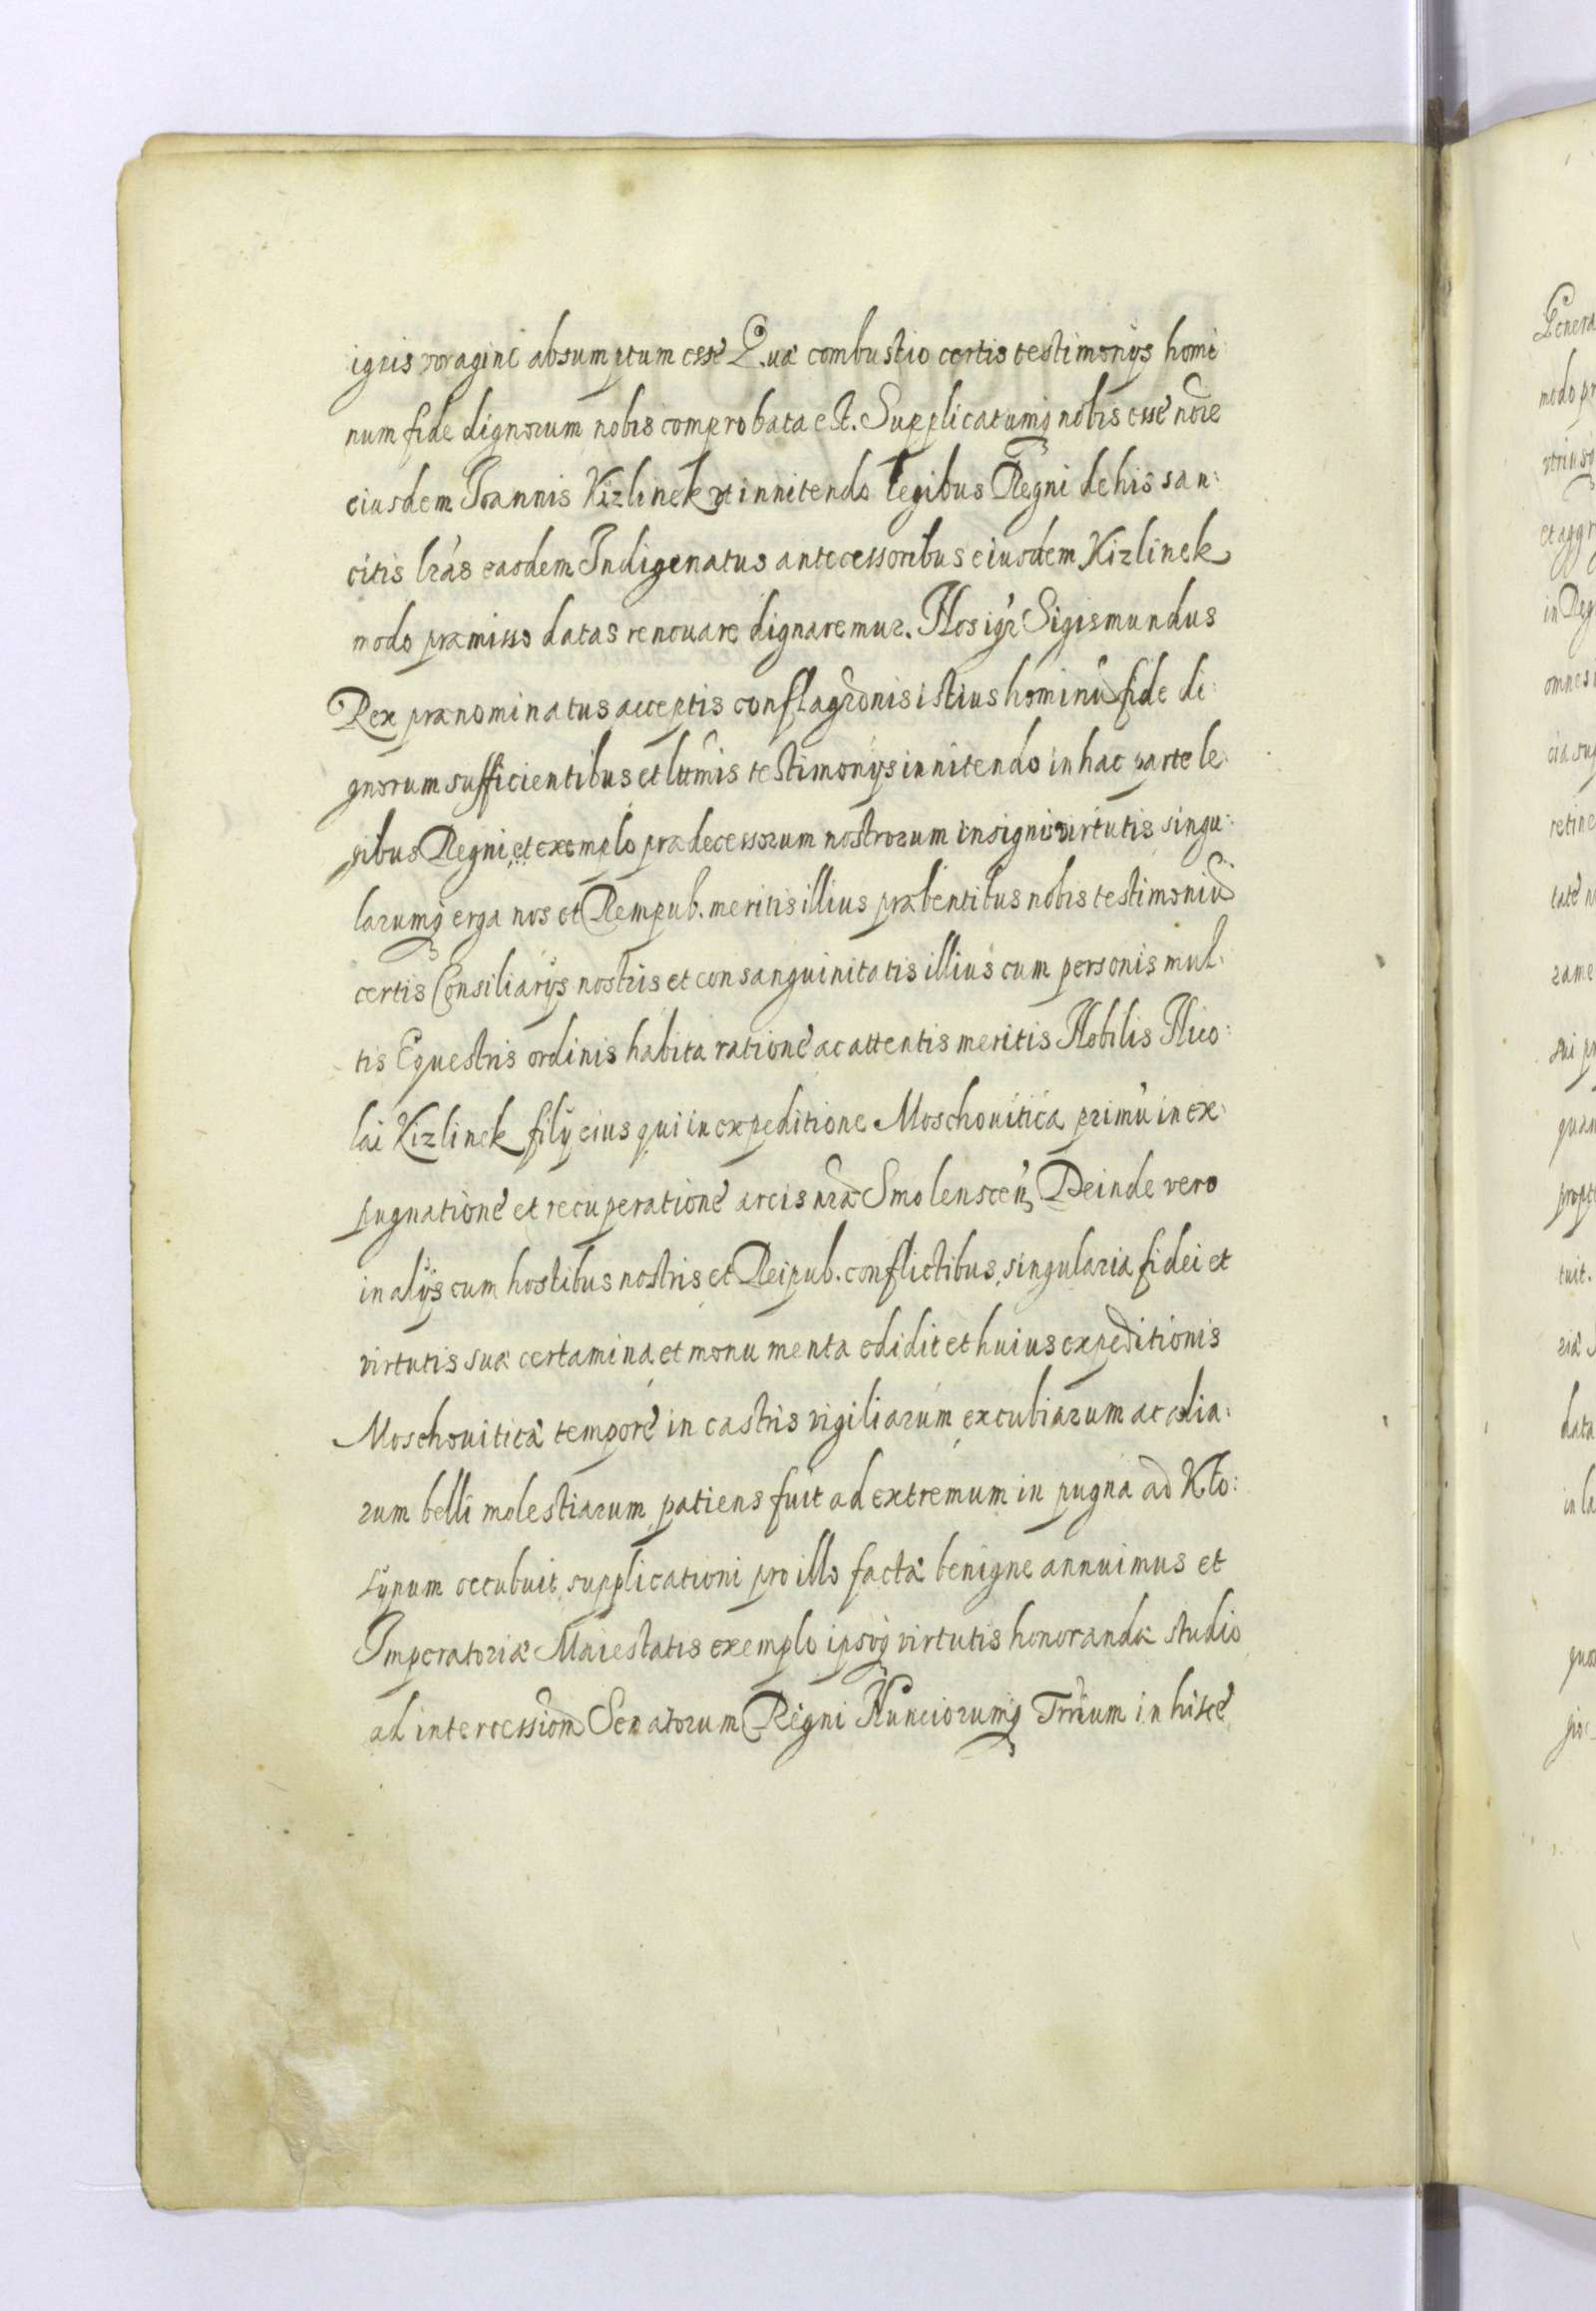 ignis voragine absumptum esse Quæ combustio certis testimonÿs homi
num fide dignorum nobis comprobata est. Supplicatumq nobis esse nõie
eiusdem Joannis Kizlinek ut innitendo legibus Regni de his san:
citis lrás easdem Indigenatus antecessoribus eiusdem Kizlinek
modo præmisso datas renouare dignaremur. Nos igr Sigismundus
Rex prænominatus acceptis conflagrõnis istius hominũ fide di:
gnorum sufficientibus et lttmis testimonÿs innitendo in hac parte le:
gibus Regni, et exemplo prædecessorum nostrorum insignis virtutis singu:
larumq erga nos et Rempub. meritis illius præbentibus nobis testimoniũ
certis Consiliarÿs nostris et consanguinitatis illius cum personis mul:
tis Equestris ordinis habita ratione ac attentis meritis Nobilis Nico:
lai Kizlinek filÿ eius qui in expeditione Moschouitica primũ in ex:
pugnatione et recuperatione arcis nræ Smolenscen Deinde vero
in alÿs cum hostibus nostris et Reipub. conflictibus, singularia fidei et
virtutis suæ certamina, et monumenta edidit et huius expeditionis
Moschouiticæ tempore in castris vigiliarum excubiarum ac alia:
rum belli molestiarum patiens fuit ad extremum in pugna ad Klo:
sÿnum occubuit, supplicationi pro illo factæ benigne annuimus et
Imperatoriæ Maiestatis exemplo ipsoq virtutis honorandæ studio
ad intercessiõm Senatorum Regni Nunciorumq Trrium in hisce